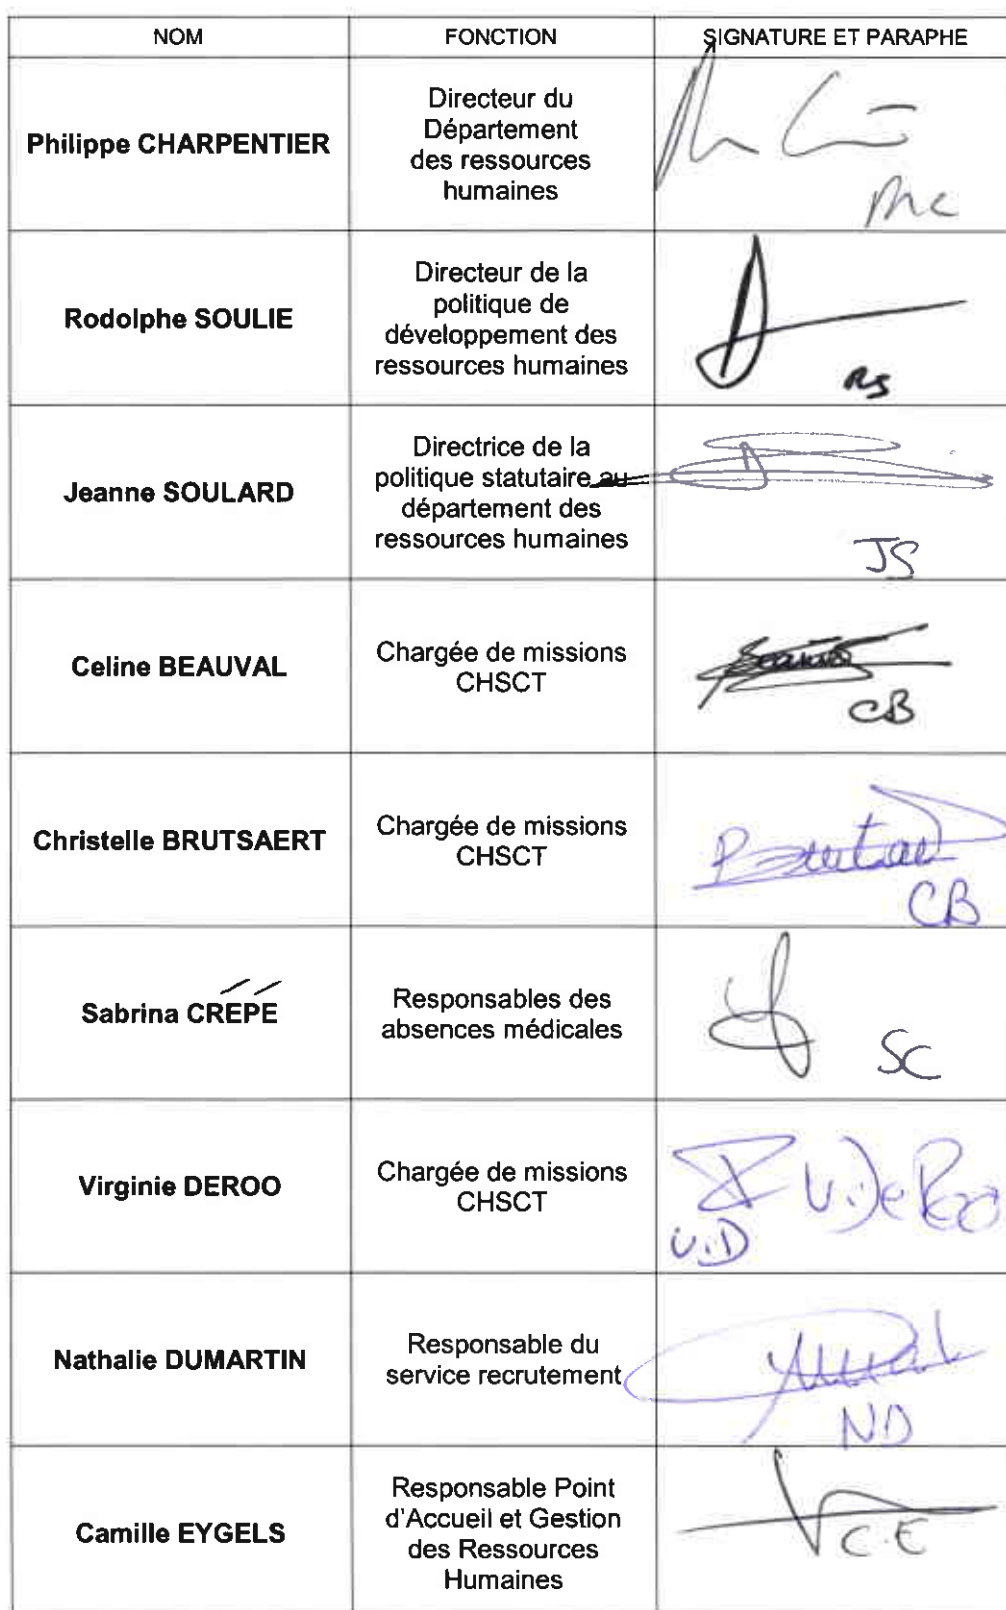 NOM FONCTION SIGNATURE ET PARAPHE
Philippe CHARPENTIER
Directeur du
Département
des ressources
humaines
Rodolphe SOULIE
Directeur de la
politique de
développement des
ressources humaines
RS
Jeanne SOULARD
Directrice de la
politique statutaire au
département des
ressources humaines
JS
Celine BEAUVAL
Chargée de missions
CHSCT
CB
Christelle BRUTSAERT
Chargée de missions
CHSCT
CB
Sabrina CRÉPÉ
Responsables des
absences médicales
SC
Virginie DEROO
Chargée de missions
CHSCT
V.DeRoo
V.D
Nathalie DUMARTIN
Responsable du
service recrutement
ND
Camille EYGELS
Responsable Point
d'Accueil et Gestion
des Ressources
Humaines
C.E